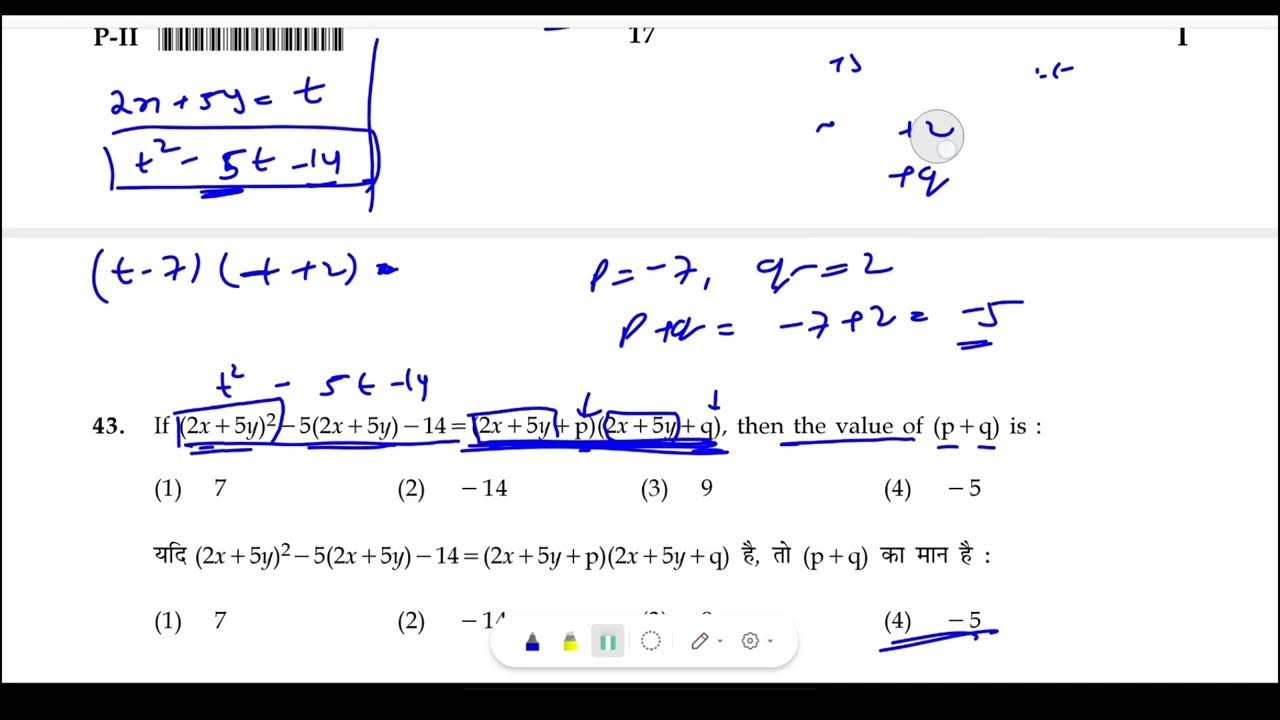 P-II 17 I
2x + 5y = t
t² - 5t - 14
+2
+q
(t - 7) (t + 2) =
p = -7, q = 2
p + q = -7 + 2 = -5
t² - 5t - 14
43. If (2x + 5y)² − 5(2x + 5y) − 14 = (2x + 5y + p)(2x + 5y + q), then the value of (p + q) is :
(1) 7 (2) − 14 (3) 9 (4) − 5
यदि (2x + 5y)² − 5(2x + 5y) − 14 = (2x + 5y + p)(2x + 5y + q) है, तो (p + q) का मान है :
(1) 7 (2) − 14 (4) − 5